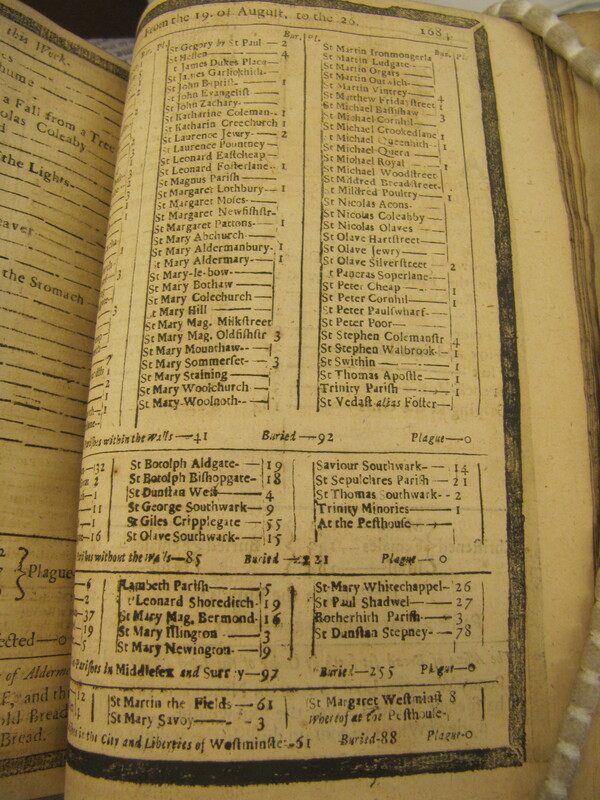 this Work.
a Fall from a Tree
olas Coleaby
the Lights.
eaver
the Stomach
Plague
From the 19. of August, to the 26. 168
Bur. Pl.
St Gregory by St Paul — 2
St Hellen — 4
St James Dukes Place —
St James Garlickhith —
St John Baptist — 1
St John Evangelist
St John Zachary —
St Katharine Coleman — 1
St Katharin Creechurch 1
St Laurence Jewry — 2
St Laurence Pountney —
St Leonard Eastcheap —
St Leonard Fosterlane — 1
St Magnus Parish —
St Margaret Lothbury — 1
St Margaret Moses —
St Margaret Newfishstr-
St Margaret Pattons — 1
St Mary Abchurch —
St Mary Aldermanbury- 1
St Mary Aldermary — 1
St Mary-le-bow —
St Mary Bothaw —
St Mary Colechurch —
St Mary Hill —
St Mary Mag. Milkstreet
St Mary Mag. Oldfishstr 3
St Mary Mounthaw —
St Mary Sommerset — 3
St Mary Staining —
St Mary Woolchurch —
St Mary-Woolnoth —
Bur. Pl.
St Martin Ironmongerla
St Martin Ludgate —
St Martin Orgars —
St Martin Outwich —
St Martin Vintrey — 4
St Matthew Fridaystreet 1
St Michael Bassishaw — 3
St Michael Cornhil —
St Michael Crookedlane 1
St Michael Queenhith — 1
St Michael Quern —
St Michael Royal — 1
St Michael Woodstreet-
St Mildred Breadstreet-
St Mildred Poultry — 1
St Nicolas Acons —
St Nicolas Coleabby —
St Nicolas Olaves —
St Olave Hartstreet —
St Olave Jewry —
St Olave Silverstreet — 2
St Pancras Soperlane —
St Peter Cheap — 1
St Peter Cornhil — 1
St Peter Paulswharf —
St Peter Poor —
St Stephen Colemanstr 4
St Stephen Walbrook — 1
St Swithin — 1
St Thomas Apostle — 1
Trinity Parish —
St Vedast alias Foster —
within the Walls — 41 Buried — 92 Plague — 0
St Botolph Aldgate- 19
St Botolph Bishopgate- 18
St Dunstan West — 4
St George Southwark — 9
St Giles Cripplegate — 55
St Olave Southwark — 15
Saviour Southwark — 14
St Sepulchres Parish — 21
St Thomas Southwark — 2
Trinity Minories — 1
At the Pesthouse —
without the Walls — 85 Buried — 221 Plague — 0
Lambeth Parish — 5
St Leonard Shoreditch- 19
St Mary Mag, Bermond- 16
St Mary Islington — 3
St Mary Newington — 9
St Mary Whitechappel- 26
St Paul Shadwel — 27
Rotherhith Parish — 3
St Dunstan Stepney — 78
Parishes in Middlesex and Surrey — 97 Buried — 255 Plague — 0
St Martin the Fields — 61
St Mary Savoy — 3
St Margaret Westminst 8
Whereof at the Pesthouse-
in the City and Liberties of Westminster- 61 Buried-88 Plague-0